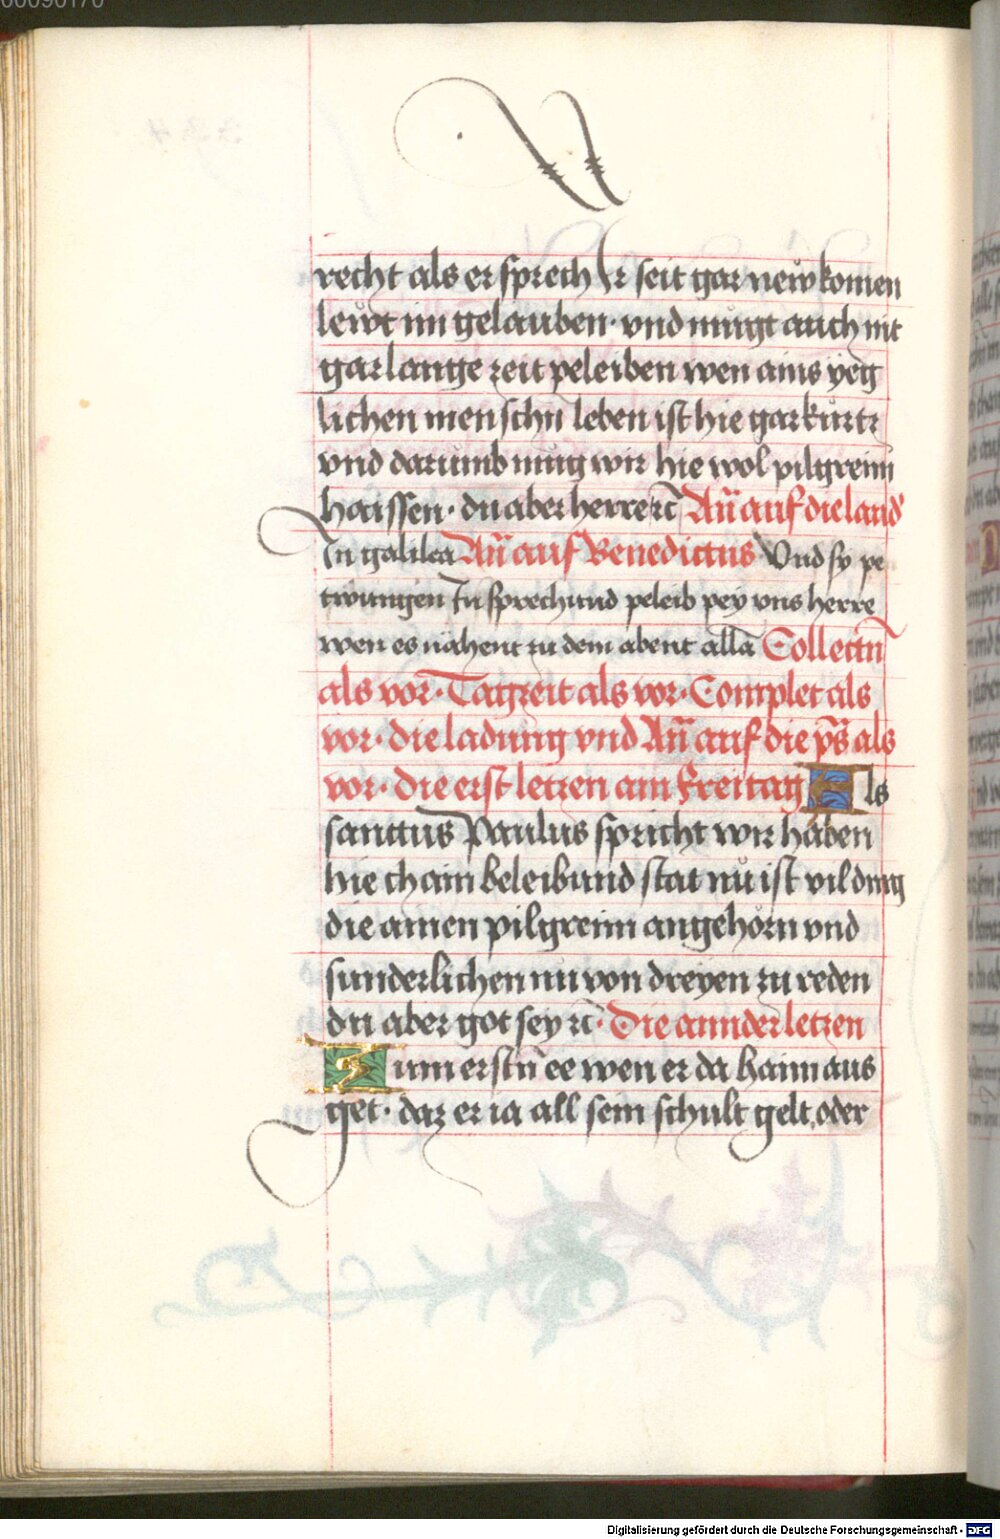 00090170
recht als er sprech Ir seit gar new komen
lewt im gelauben · vnd mugt auch nit
gar lange zeit peleiben wen ains yeg
lichen menschn leben ist hie gar kurtz
vnd darumb mug wir hie wol pilgreim
haissen · du aber herre ꝛc̄ An̄ auf die land
In galilea An̄ auf Benedictus Vnd sy pe
twungen In sprechund peleib pey vns herre
wen es nahent zu dem abent allā Collectn
als vor · Tagzeit als vor · Complet als
vor · die ladung vnd An̄ auf die ps̄ als
vor · die erst letzen am Freitag Als
sanctus Paulus spricht wir haben
hie chain beleibund stat nů ist vil ding
die ainen pilgreim angehorn vnd
sunderlichen nu von dreyen zu reden
du aber got sey ꝛc̄ · Die annder letzen
Zum erstn̄ ee wen er da haim aus
get · daz er ia all sein schult gelt, oder
Digitalisierung gefördert durch die Deutsche Forschungsgemeinschaft - DFG